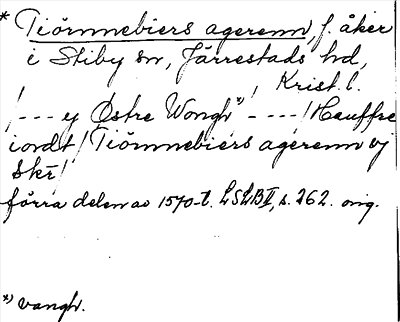 * Tiörnnebiers agerenn, f. åker
i Stiby sn, Järrestads hd,
Krist. l.
/--- ey Østre Wongh*) ----/Hauffre
iordt/Tiörnnebiers agerenn vj
Skr/
förra delen av 1570-t. LSLB II, s. 262. orig.
*) vangh.